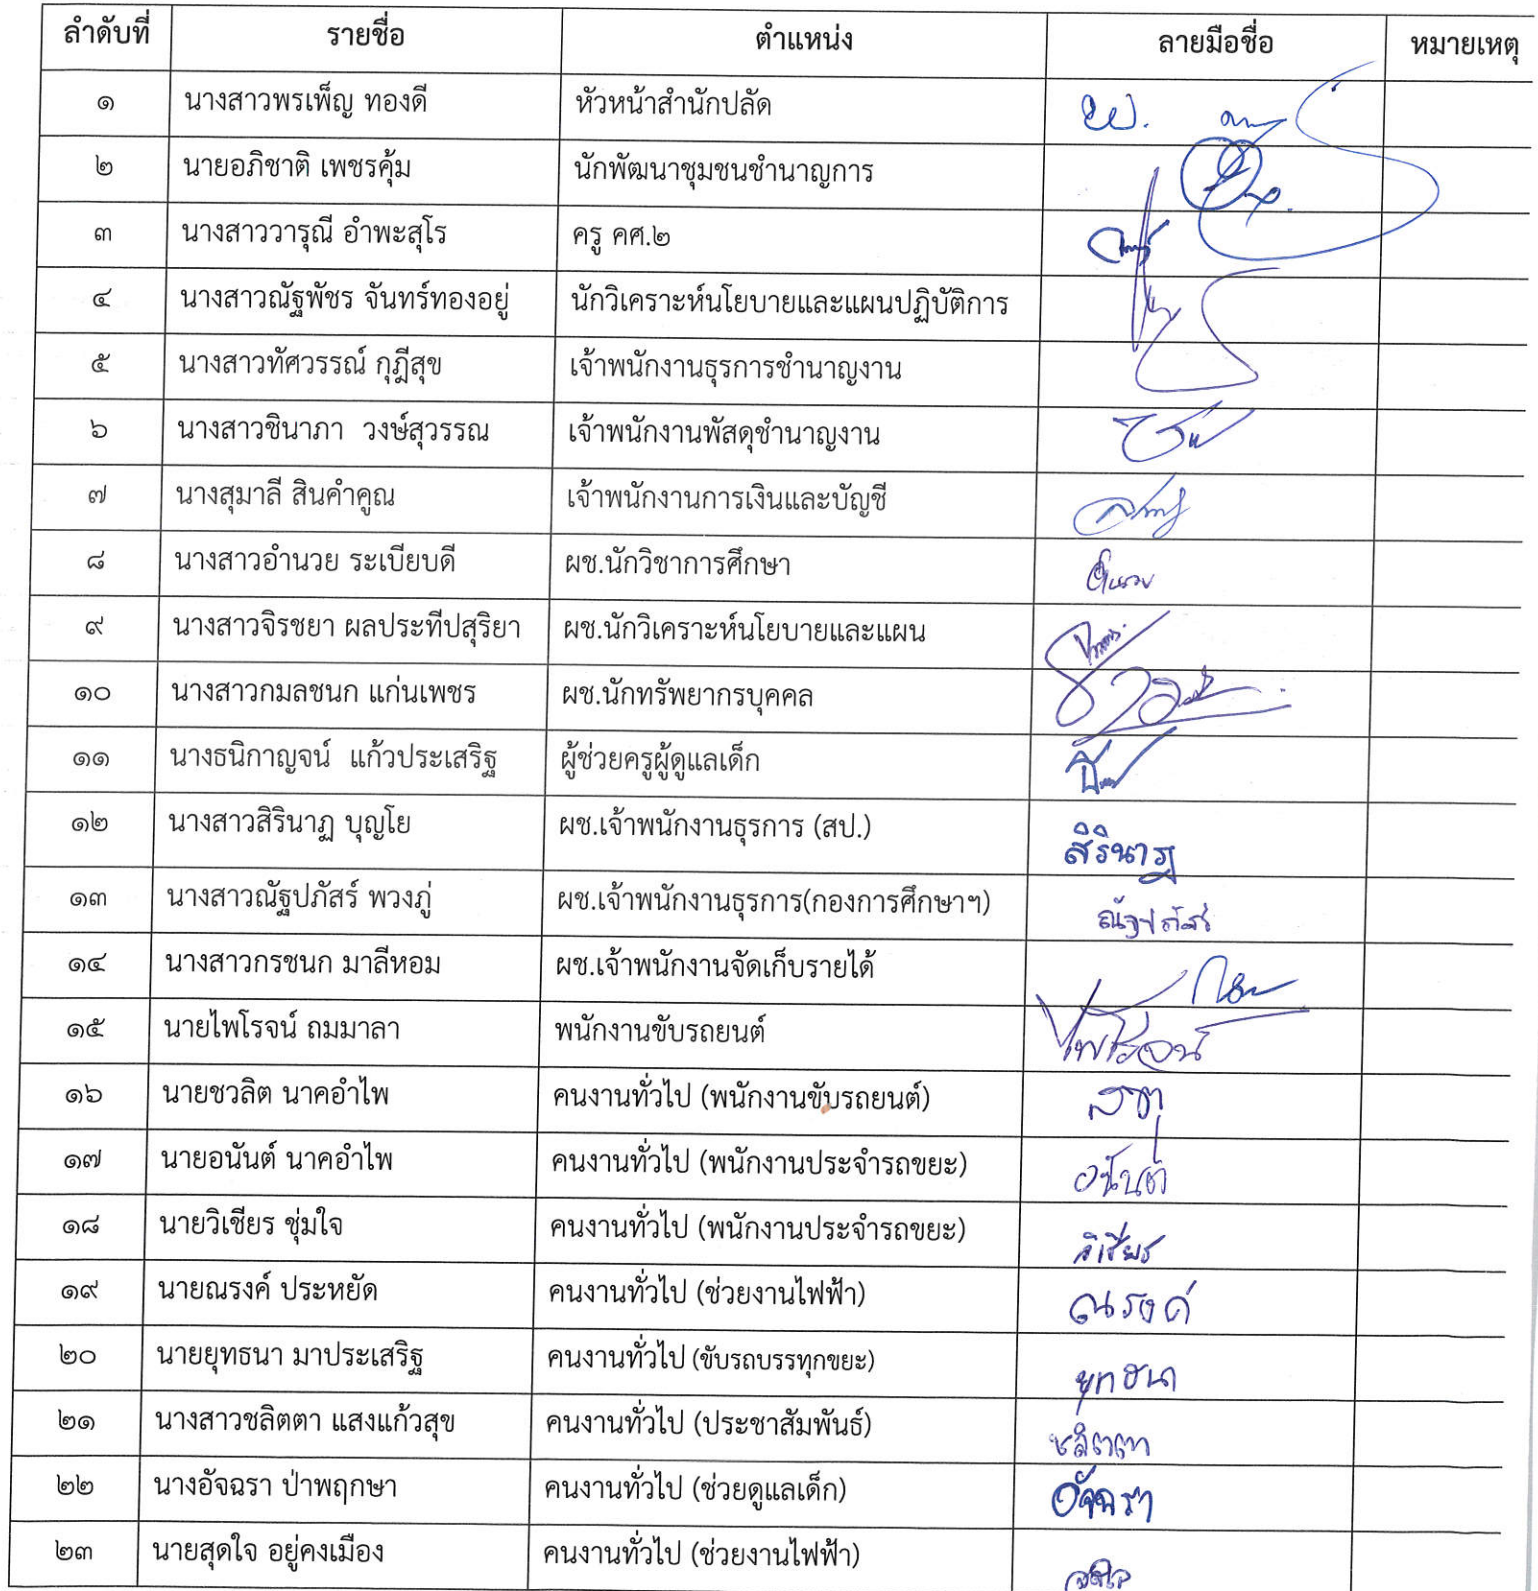 ลำดับที่ รายชื่อ ตำแหน่ง ลายมือชื่อ หมายเหตุ
๑ นางสาวพรเพ็ญ ทองดี หัวหน้าสำนักปลัด
๒ นายอภิชาติ เพชรคุ้ม นักพัฒนาชุมชนชำนาญการ
๓ นางสาววารุณี อำพะสุโร ครู คศ.๒
๔ นางสาวณัฐพัชร จันทร์ทองอยู่ นักวิเคราะห์นโยบายและแผนปฏิบัติการ
๕ นางสาวทัศวรรณ์ กุฎีสุข เจ้าพนักงานธุรการชำนาญงาน
๖ นางสาวชินาภา วงษ์สุวรรณ เจ้าพนักงานพัสดุชำนาญงาน
๗ นางสุมาลี สินคำคูณ เจ้าพนักงานการเงินและบัญชี
๘ นางสาวอำนวย ระเบียบดี ผช.นักวิชาการศึกษา
๙ นางสาวจิรชยา ผลประทีปสุริยา ผช.นักวิเคราะห์นโยบายและแผน
๑๐ นางสาวกมลชนก แก่นเพชร ผช.นักทรัพยากรบุคคล
๑๑ นางธนิกาญจน์ แก้วประเสริฐ ผู้ช่วยครูผู้ดูแลเด็ก
๑๒ นางสาวสิรินาฏ บุญโย ผช.เจ้าพนักงานธุรการ (สป.) สิรินาฏ
๑๓ นางสาวณัฐปภัสร์ พวงภู่ ผช.เจ้าพนักงานธุรการ(กองการศึกษาฯ) ณัฐปภัสร์
๑๔ นางสาวกรชนก มาลีหอม ผช.เจ้าพนักงานจัดเก็บรายได้
๑๕ นายไพโรจน์ ถมมาลา พนักงานขับรถยนต์ ไพโรจน์
๑๖ นายชวลิต นาคอำไพ คนงานทั่วไป (พนักงานขับรถยนต์)
๑๗ นายอนันต์ นาคอำไพ คนงานทั่วไป (พนักงานประจำรถขยะ) อนันต์
๑๘ นายวิเชียร ชุ่มใจ คนงานทั่วไป (พนักงานประจำรถขยะ) วิเชียร
๑๙ นายณรงค์ ประหยัด คนงานทั่วไป (ช่วยงานไฟฟ้า) ณรงค์
๒๐ นายยุทธนา มาประเสริฐ คนงานทั่วไป (ขับรถบรรทุกขยะ) ยุทธนา
๒๑ นางสาวชลิตตา แสงแก้วสุข คนงานทั่วไป (ประชาสัมพันธ์) ชลิตตา
๒๒ นางอัจฉรา ป่าพฤกษา คนงานทั่วไป (ช่วยดูแลเด็ก) อัจฉรา
๒๓ นายสุดใจ อยู่คงเมือง คนงานทั่วไป (ช่วยงานไฟฟ้า)